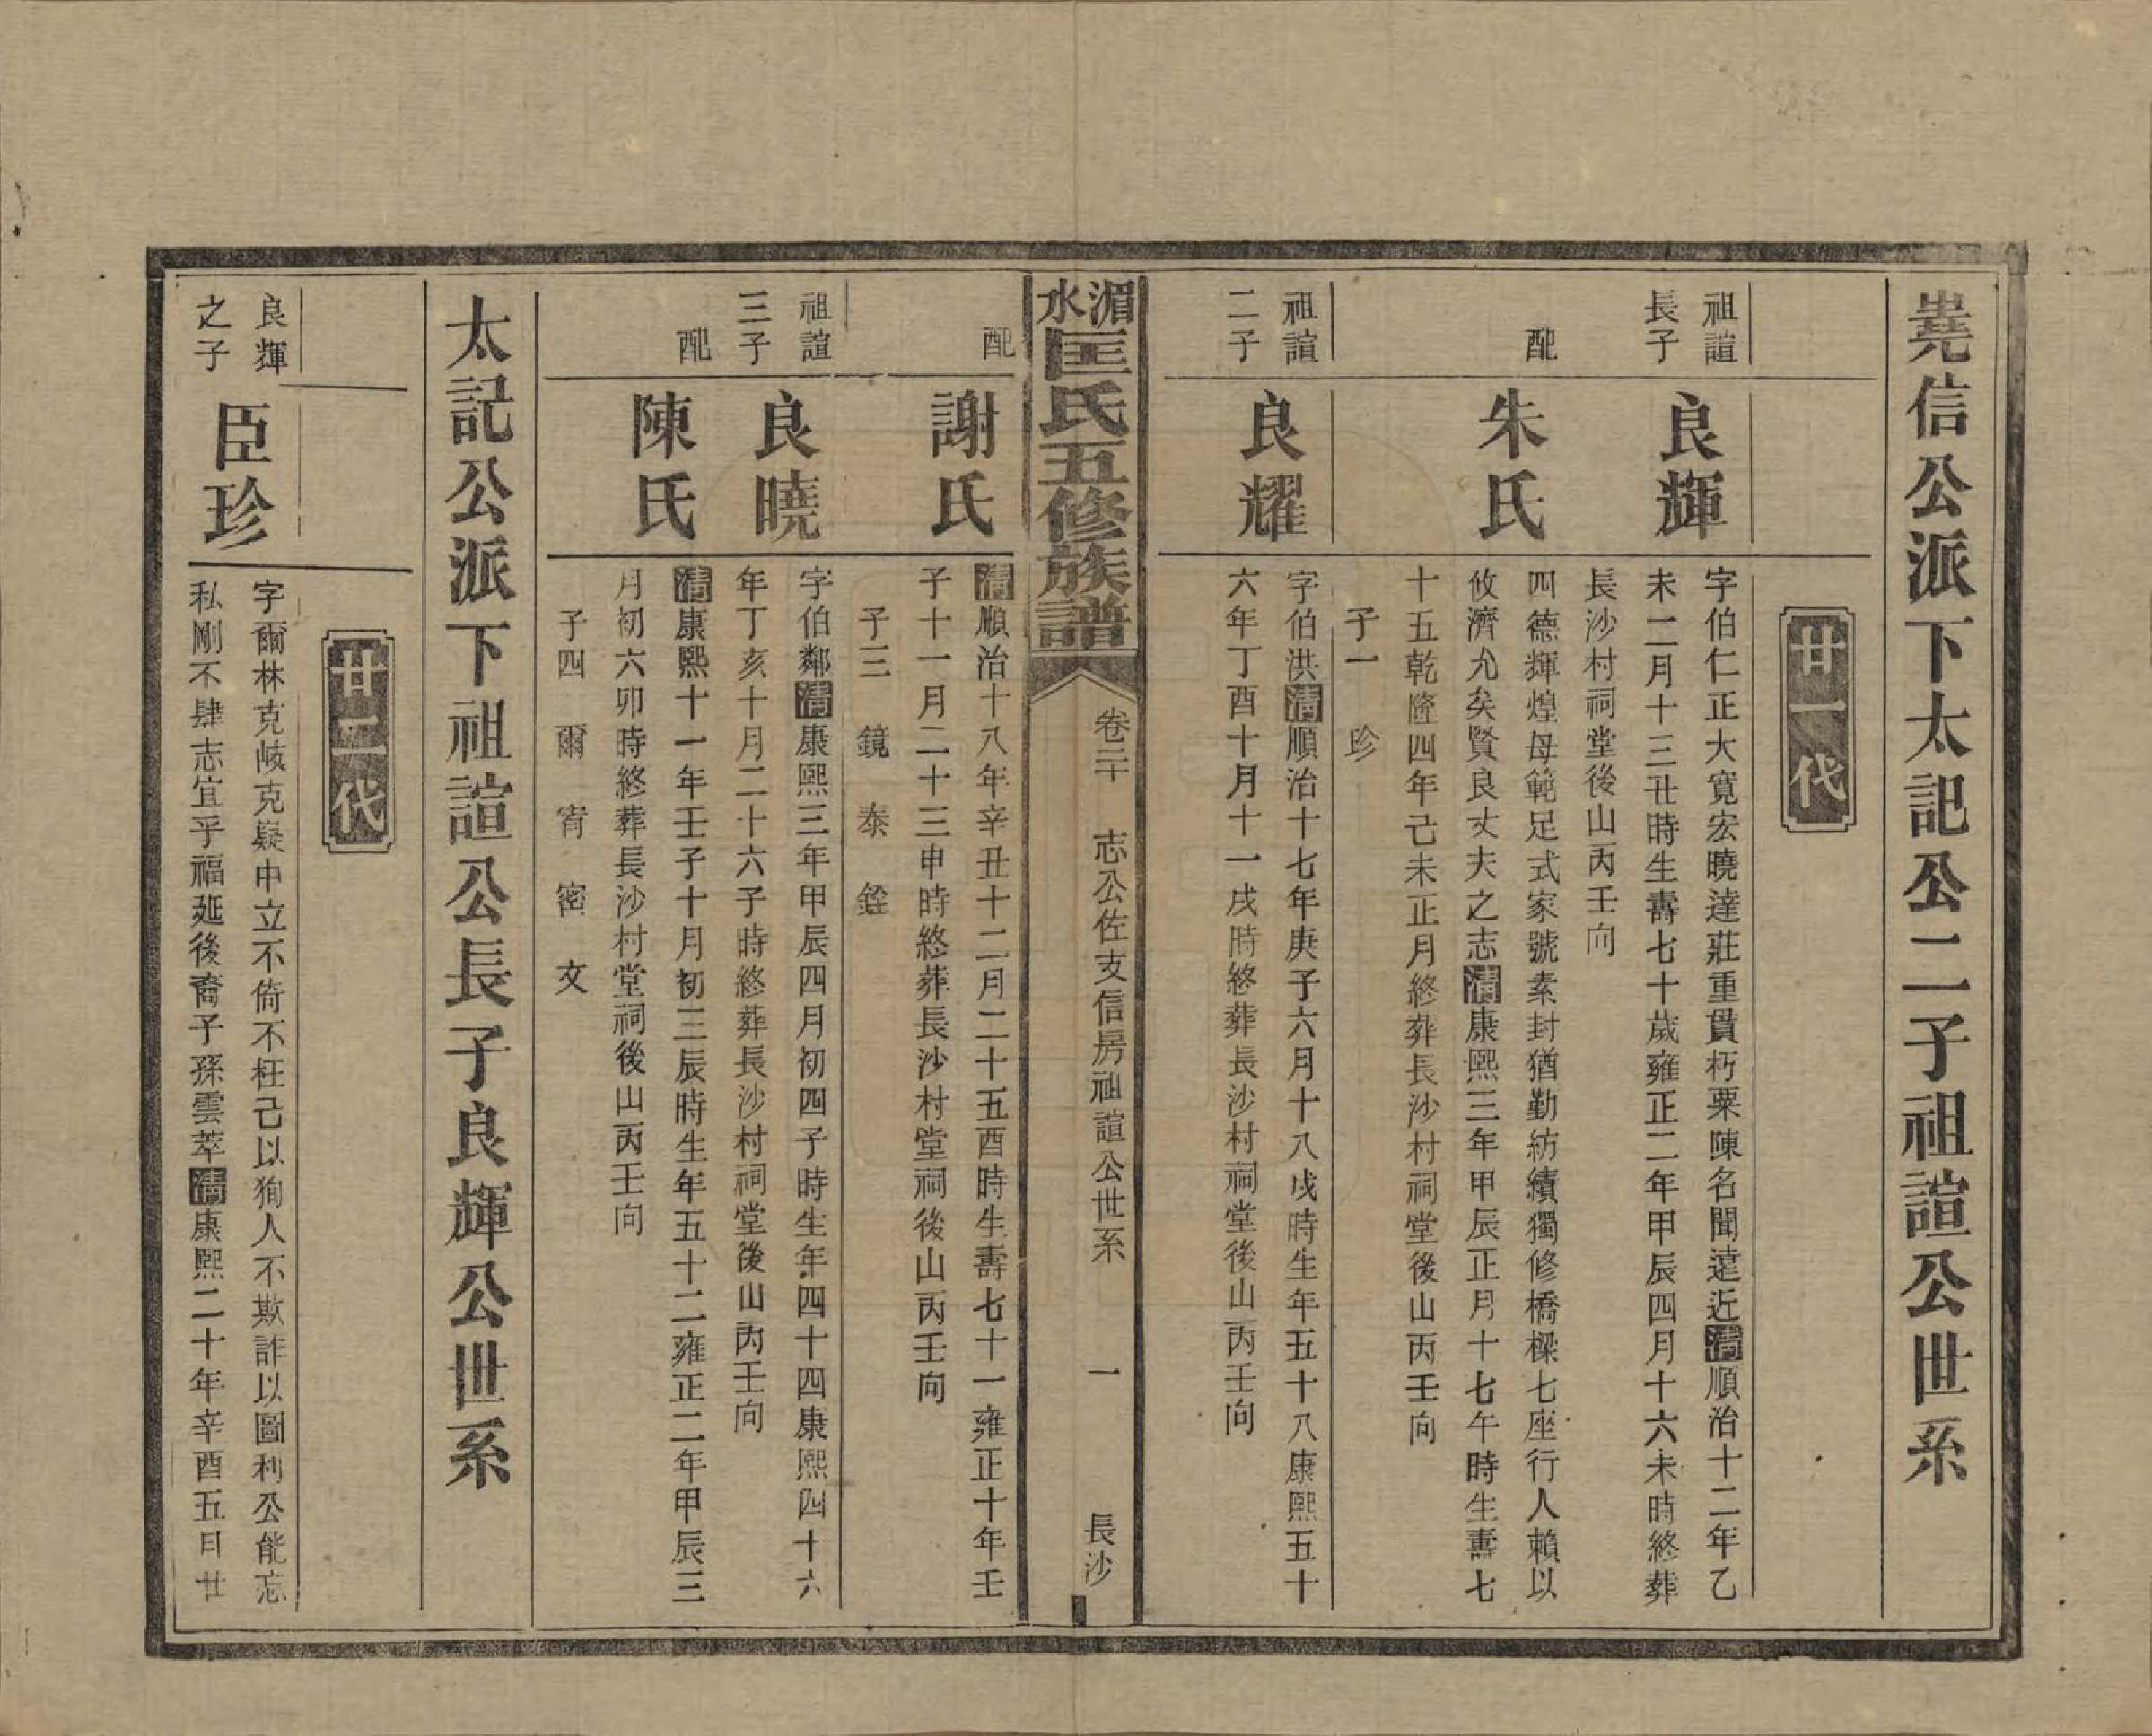 堯信公派下太記公二子祖諠公世系
廿一代
祖諠
長子
良輝
字伯仁正大寬宏曉達莊重貫朽粟陳名聞遠近清順治十二年乙
未二月十三丑時生壽七十歲雍正二年甲辰四月十六未時終葬
長沙村祠堂後山丙壬向
配
朱氏
四德輝煌母範足式家號素封猶勤紡績獨修橋樑七座行人賴以
攸濟允矣賢良丈夫之志清康熙三年甲辰正月十七午時生壽七
十五乾隆四年己未正月終葬長沙村祠堂後山丙壬向
子一 珍
祖諠
二子
良耀
字伯洪清順治十七年庚子六月十八戌時生年五十八康熙五十
六年丁酉十月十一戌時終葬長沙村祠堂後山丙壬向
湄水匡氏五修族譜
卷三十 志公佐支信房祖諠公世系 一 長沙
配
謝氏
清順治十八年辛丑十二月二十五酉時生壽七十一雍正十年壬
子十一月二十三申時終葬長沙村堂祠後山丙壬向
子三 鏡 泰 銓
祖諠
三子
良曉
字伯鄰清康熙三年甲辰四月初四子時生年四十四康熙四十六
年丁亥十月二十六子時終葬長沙村祠堂後山丙壬向
配
陳氏
清康熙十一年壬子十月初三辰時生年五十二雍正二年甲辰三
月初六卯時終葬長沙村堂祠後山丙壬向
子四 爾 宵 密 文
太記公派下祖諠公長子良輝公世系
廿二代
良輝
之子
臣珍
字爾林克岐克嶷中立不倚不枉己以狥人不欺詐以圖利公能忘
私剛不肆志宜乎福延後裔子孫雲萃清康熙二十年辛酉五月廿